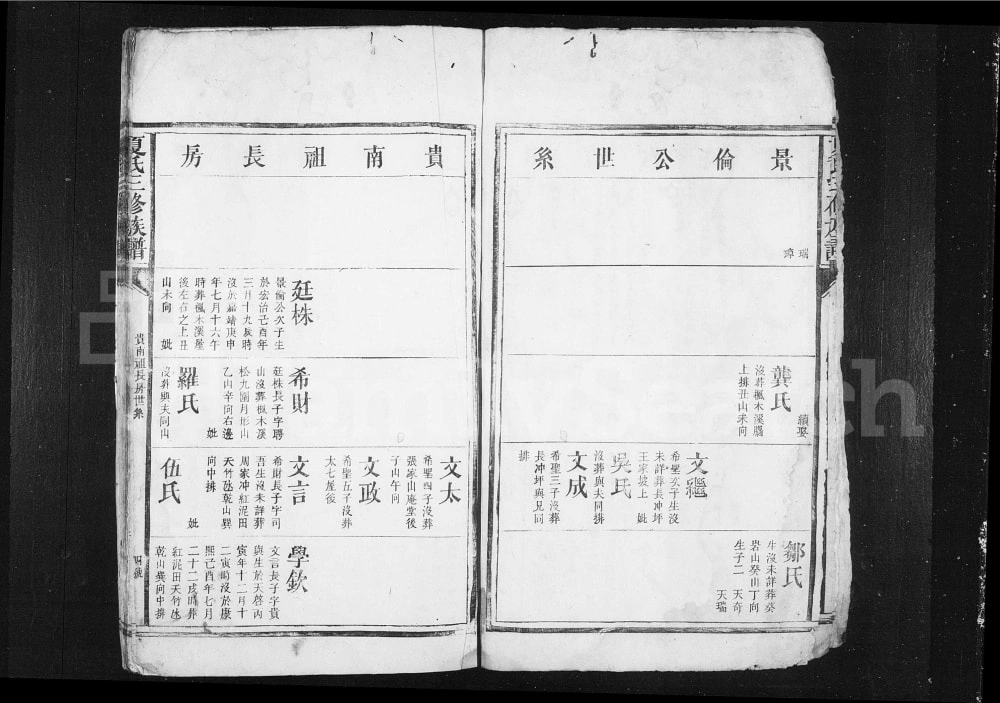 景倫公世系
瑞
璋
龔氏
續娶
沒葬楓木溪腦
上排丑山未向
文繼
希聖次子生沒
未詳葬長冲坪
王家坡上 妣
吳氏
沒葬與夫同排
文成
希聖三子沒葬
長冲坪與兄同
排
鄒氏
生沒未詳葬癸
岩山癸山丁向
生子二 天奇
天瑞
貴南祖長房
廷株
景倫公次子生
於宏治己酉年
三月十九辰時
沒於嘉靖庚申
年七月十六午
時葬楓木溪屋
後左右之上丑
山未向 妣
希財
廷株長子字聘
山沒葬楓木溪
松九園月形山
乙山辛向右邊
妣
羅氏
沒葬與夫同山
文太
希聖四子沒葬
張家山庵堂後
子山午向
文政
希聖五子沒葬
太七屋後
文言
希財長子字司
吾生沒未詳葬
周家冲紅泥田
天竹氹乾山巽
向中排
妣
伍氏
學欽
文言長子字貴
與生於天啓丙
寅年十二月十
二寅時沒於康
熙己酉年七月
二十二戌時葬
紅泥田天竹氹
乾山巽向中排
夏氏三修族譜
貴南祖長房世系
四號